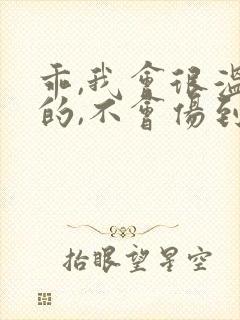 乖,我會很溫
的,不會傷到
抬眼望星空